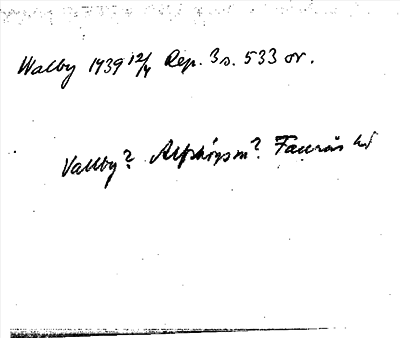 Walby 1739 12/4 Rep. 3 s. 533 or.
Vallby? Alfshögsm? Faurås hd